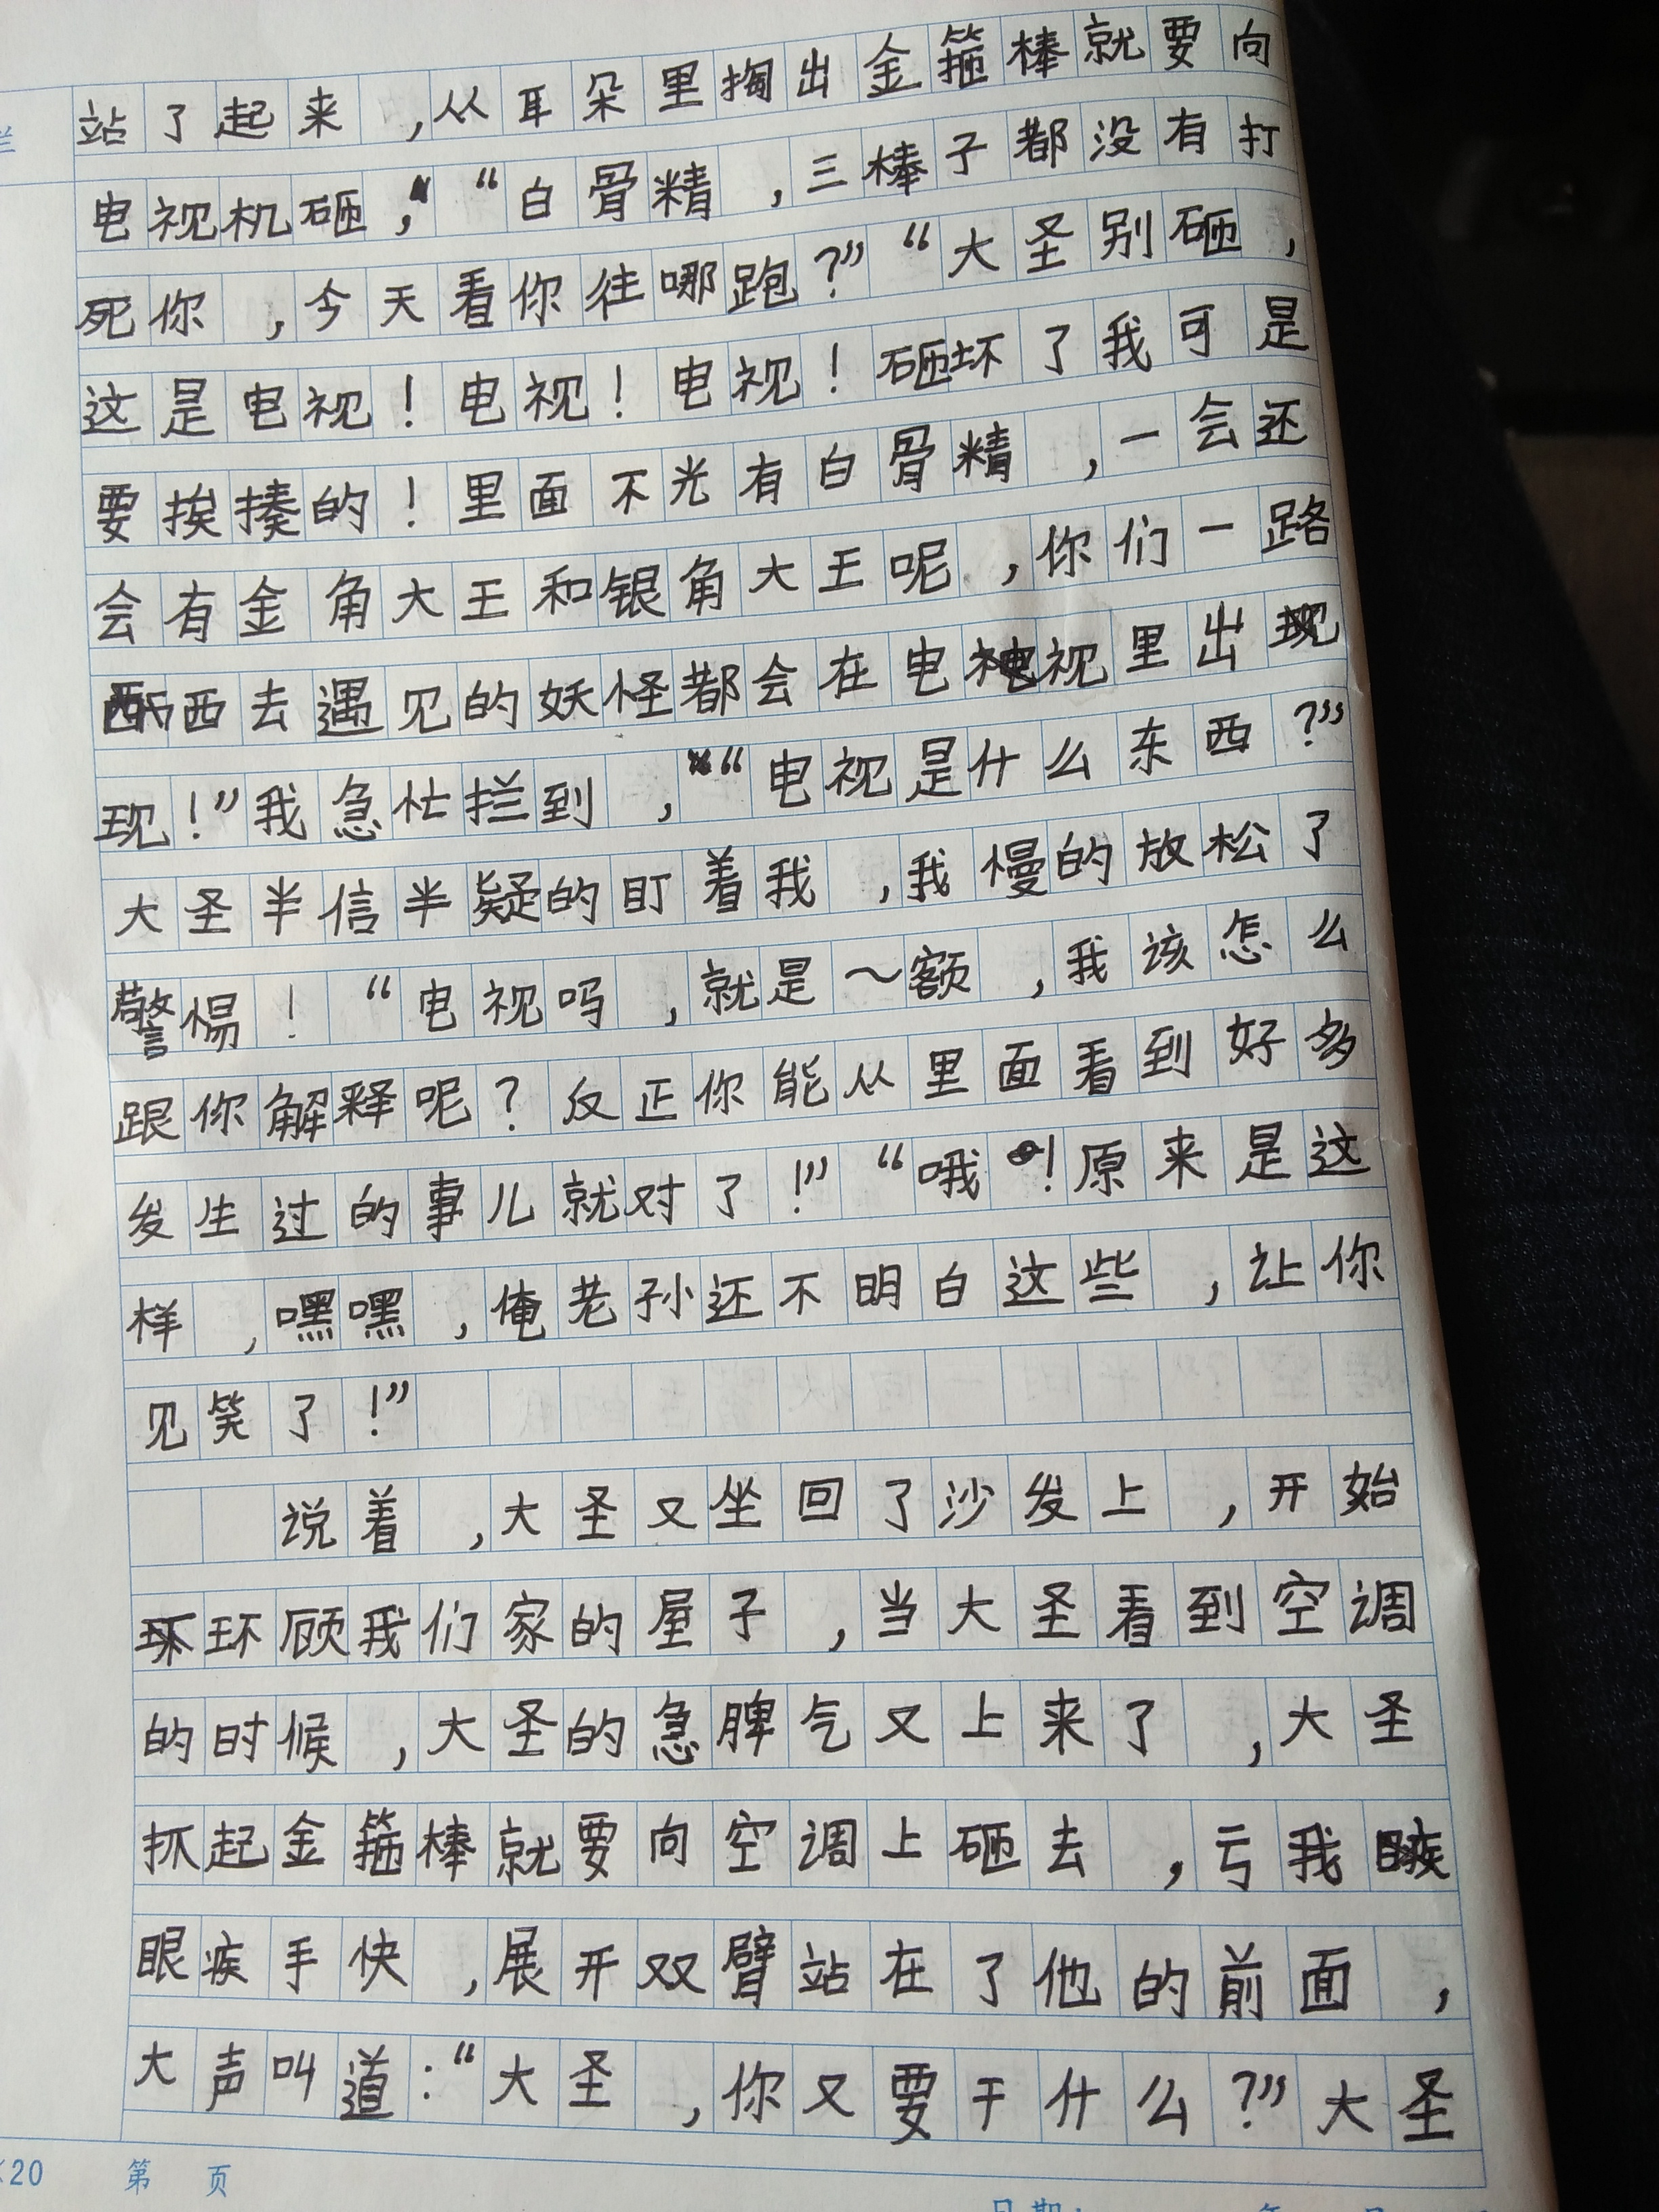 站了起来,从耳朵里掏出金箍棒就要向
电视机砸,“白骨精,三棒子都没有打
死你,今天看你往哪跑?”“大圣别砸,
这是电视!电视!电视!砸坏了我可是
要挨揍的!里面不光有白骨精,一会还
会有金角大王和银角大王呢,你们一路
西去遇见的妖怪都会在电视里出
现!”我急忙拦到,“电视是什么东西?”
大圣半信半疑的盯着我,我慢的放松了
警惕!“电视吗,就是~额,我该怎么
跟你解释呢?反正你能从里面看到好多
发生过的事儿就对了!”“哦!原来是这
样,嘿嘿,俺老孙还不明白这些,让你
见笑了!”
说着,大圣又坐回了沙发上,开始
环顾我们家的屋子,当大圣看到空调
的时候,大圣的急脾气又上来了,大圣
抓起金箍棒就要向空调上砸去,亏我
眼疾手快,展开双臂站在了他的前面,
大声叫道:“大圣,你又要干什么?”大圣
×20 第 页